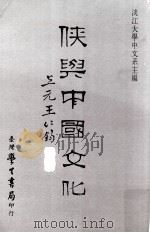 淡江大學中文系主編
俠與中國文化
臺灣學生書局
印行
www.mtoou.info